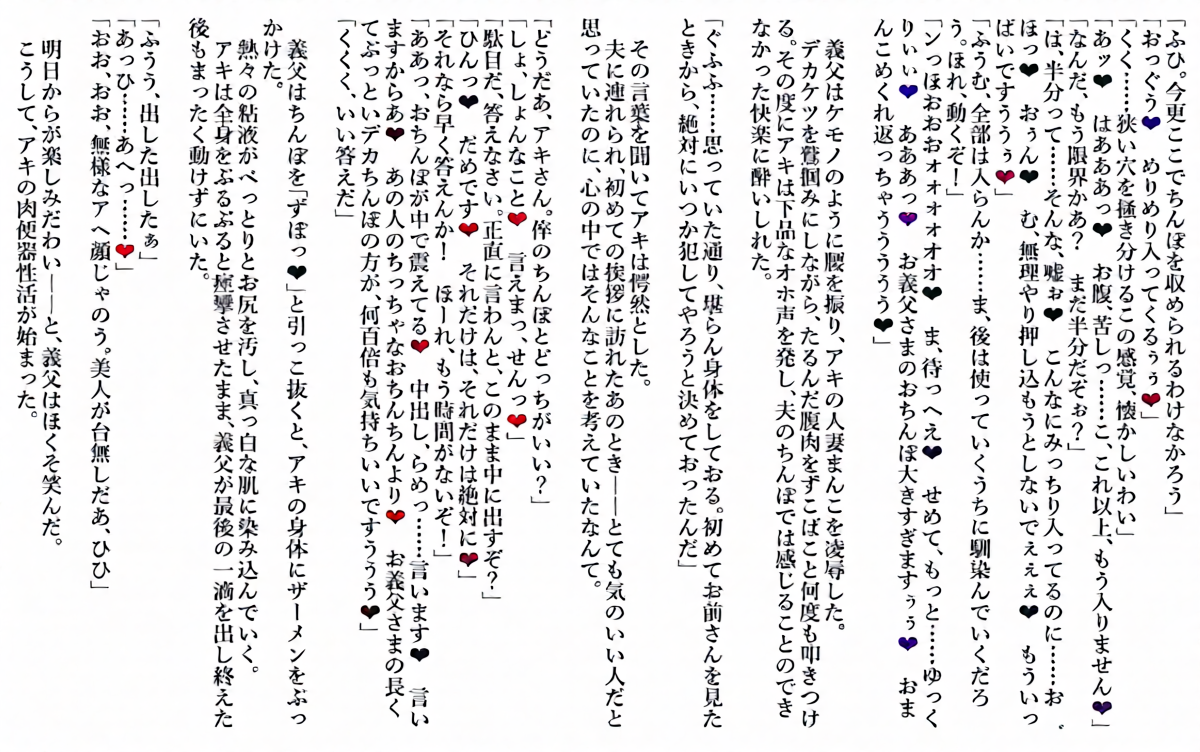 「ふひ。今更ここでちんぽを収められるわけなかろう」
「おっぐぅ❤　めりめり入ってくるぅぅ❤」
「くく……狭い穴を掻き分けるこの感覚、懐かしいわい」
「あッ❤　はあああっ❤　お腹、苦しっ……こ、これ以上、もう入りません❤」
「なんだ、もう限界かあ？　まだ半分だぞぉ？」
「は、半分って……そんな、嘘ぉ❤　こんなにみっちり入ってるのに……お゛
ほっ❤　おぅん❤　む、無理やり押し込もうとしないでぇぇぇ❤　もういっ
ぱいですううぅ❤」
「ふうむ、全部は入らんか……ま、後は使っていくうちに馴染んでいくだろ
う。ほれ、動くぞ！」
「ンっほおおおォォォォオオ❤　ま、待っへえ❤　せめて、もっと……ゆっく
りぃぃ❤　あああっ❤　お義父さまのおちんぽ大きすぎますぅぅ❤　おま
んこめくれ返っちゃうううう❤」
義父はケモノのように腰を振り、アキの人妻まんこを凌辱した。
デカケツを鷲掴みにしながら、たるんだ腹肉をずこばこと何度も叩きつけ
る。その度にアキは下品なオホ声を発し、夫のちんぽでは感じることのでき
なかった快楽に酔いしれた。
「ぐふふ……思っていた通り、堪らん身体をしておる。初めてお前さんを見た
ときから、絶対にいつか犯してやろうと決めておったんだ」
その言葉を聞いてアキは愕然とした。
夫に連れられ、初めての挨拶に訪れたあのとき――とても気のいい人だと
思っていたのに、心の中ではそんなことを考えていたなんて。
「どうだあ、アキさん。倅のちんぽとどっちがいい？」
「しょ、しょんなこと❤　言えまっ、せんっ❤」
「駄目だ、答えなさい。正直に言わんと、このまま中に出すぞ？」
「ひんっ❤　だめです❤　それだけは、それだけは絶対に❤」
「それなら早く答えんか！　ほーれ、もう時間がないぞ！」
「ああっ、おちんぽが中で震えてる❤　中出し、らめっ……言います❤　言い
ますからあ❤　あの人のちっちゃなおちんちんより❤　お義父さまの長く
てぶっといデカちんぽの方が、何百倍も気持ちいいですうううぅ❤」
「くくく、いい答えだ」
義父はちんぽを「ずぽっ❤」と引っこ抜くと、アキの身体にザーメンをぶっ
かけた。
熱々の粘液がべっとりとお尻を汚し、真っ白な肌に染み込んでいく。
アキは全身をぶるぶると痙攣させたまま、義父が最後の一滴を出し終えた
後もまったく動けずにいた。
「ふうう、出した出したぁ」
「あっひ……あへっ……❤」
「おお、おお、無様なアヘ顔じゃのう。美人が台無しだあ、ひひ」
明日からが楽しみだわい――と、義父はほくそ笑んだ。
こうして、アキの肉便器性活が始まった。